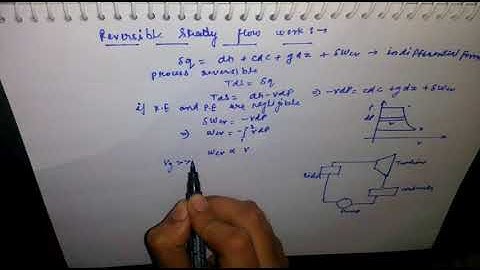 Reversible Steady flow work :→
δq = dh + cdc + gdz + δWcv → in differential form
process reversible
Tds = δq
Tds = dh - vdP ⇒ -vdP = cdc + gdz + δWcv
if K.E and P.E are negligible
δWcv = -vdP
⇒ Wcv = -∫₁² vdP
Wcv ∝ v
Vg >>
P
v
Turbine
Boiler
condenser
Pump